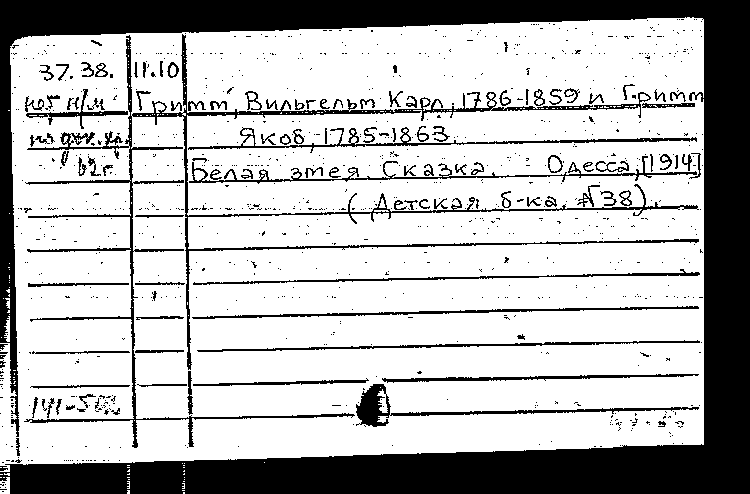 37.38. 11.10
нет н/м Гримм, Вильгельм Карл, 1786-1859 и Гримм
Якоб, 1785-1863.
62г. Белая змея. Сказка. Одесса, [1914]
(Детская б-ка. № 38).
141-502